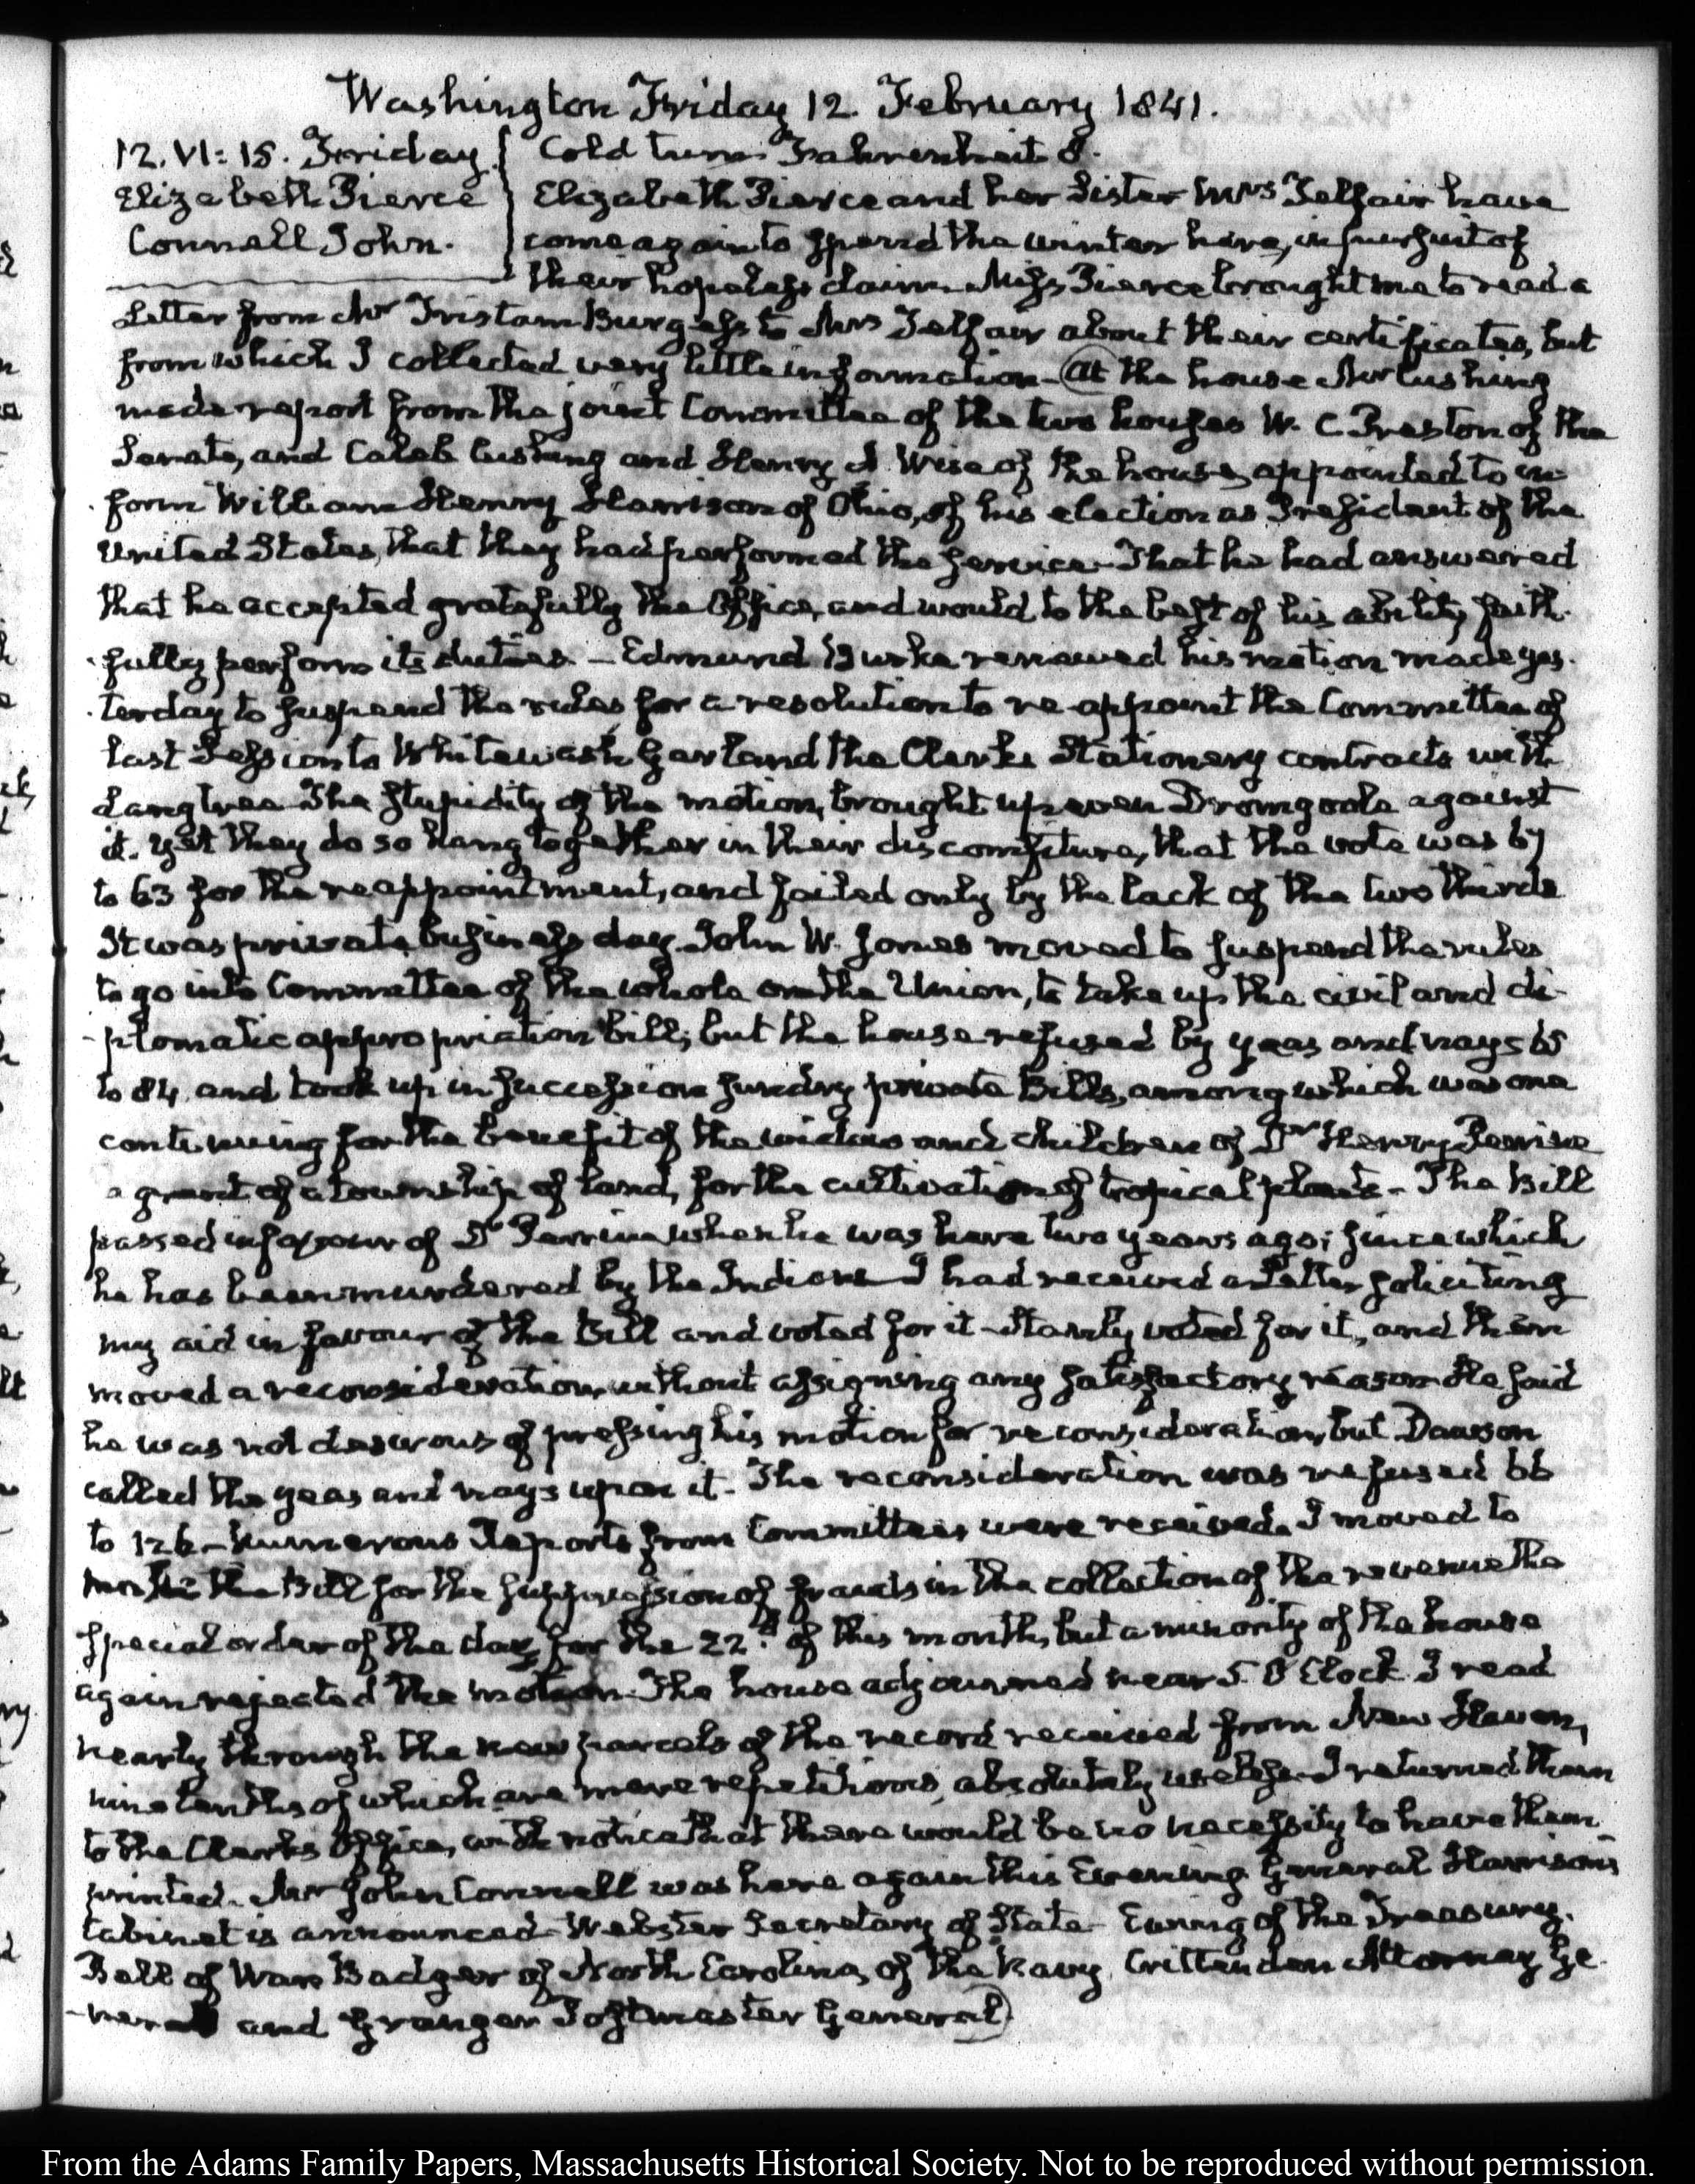 Washington Friday 12. February 1841.
12. VI: 15. Friday
Elizabeth Pierce
Connell John.
Cold turn. Fahrenheit 8.
Elizabeth Pierce and her Sister Mrs Telfair have
come again to spend the winter here, in pursuit of
their hopeless claim. Miss Pierce brought me to read a
Letter from Mr Tristam Burgess to Mrs Telfair about their certificates, but
from which I collected very little information - At the house Mr Cushing
made report from the joint Committee of the two houses W. C. Preston of the
Senate, and Caleb Cushing and Henry A. Wise of the house, appointed to in-
form William Henry Harrison of Ohio, of his election as President of the
United States, that they had performed the service - That he had answered
that he accepted gratefully the Office, and would to the best of his ability, faith-
-fully perform its duties. - Edmund Burke renewed his motion made yes-
-terday to suspend the rules for a resolution to re-appoint the Committee of
last Session to Whitewash Garland the Clerk's Stationery contracts with
Langtree - The stupidity of the motion, brought up even Dromgoole against
it. Yet they do so hang together in their discomfiture, that the vote was 67
to 63 for the reappointment, and failed only by the lack of the two thirds
It was private business day. John W. Jones moved to suspend the rules
to go into Committee of the whole on the Union, to take up the civil and di-
-plomatic appropriation bill; but the house refused by yeas and nays 65
to 84 and took up in succession sundry private Bills, among which was one
continuing for the benefit of the widow and children of Dr Henry Perrine
a grant of a township of land, for the cultivation of tropical plants - The Bill
passed in favour of Dr Perrine when he was here two years ago; since which
he has been murdered by the Indians - I had received a Letter soliciting
my aid in favour of the Bill and voted for it - Stanly voted for it, and then
moved a reconsideration, without assigning any satisfactory reason - He said
he was not desirous of pressing his motion for reconsideration, but Dawson
called the yeas and nays upon it - The reconsideration was refused 66
to 126 - Numerous Reports from Committees were received. I moved to
make the Bill for the suppression of frauds in the collection of the revenue the
special order of the day for the 22d. of this month, but a minority of the house
again rejected the motion. The house adjourned near 5. O'Clock I read
nearly through the new parcels of the record received from New Haven,
nine tenths of which are mere repetitions, absolutely useless - I returned them
to the Clerk's Office, with notice that there would be no necessity to have them
printed. Mr John Connell was here again this Evening. General Harrison's
Cabinet is announced - Webster Secretary of State - Ewing of the Treasury.
Bell of War. Badger of North Carolina, of the Navy. Crittenden Attorney Ge-
-neral and Granger Postmaster General
From the Adams Family Papers, Massachusetts Historical Society. Not to be reproduced without permission.